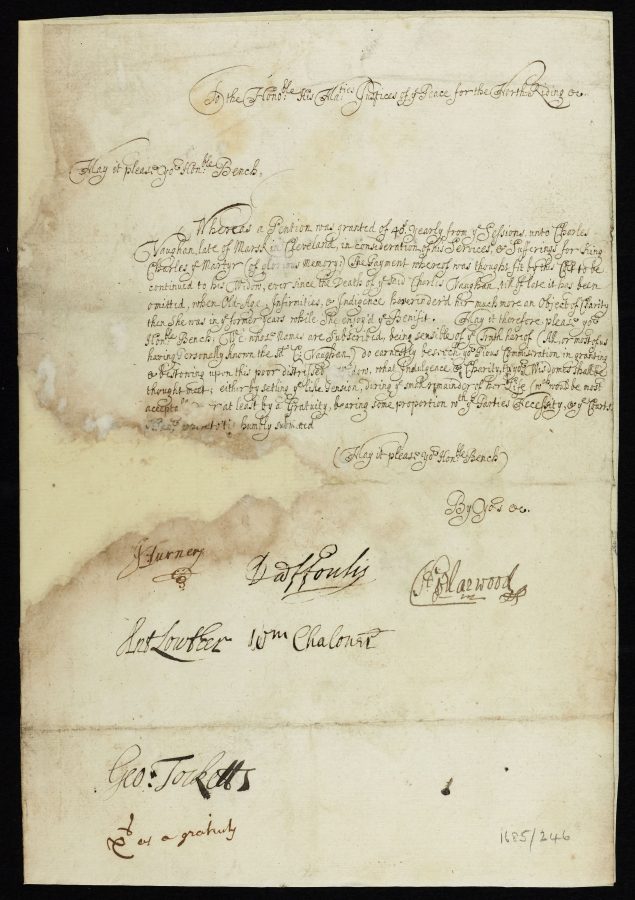 To the Hono:ble His Ma:ties Justices of ye Peace for the North Riding &c.
May it please yo:r Hon:ble Bench,
Whereas a Pention was granted of 40s yearly from ye Sessions, unto Charles
Vaughan, late of Marsk in Cleveland, in consideration of his Services & Sufferings for King
Charles ye Martyr (of glorious Memory;) the Payment whereof was thought fit by this to be
continued to his Widow, ever since the Death of ye said Charles Vaughan, till of late it has been
omitted, when Old-Age, Infirmities, & Indigence have rend'rd her much more an Object of Charity
then she was in ye former Years while she enjoy'd ye Benefit. May it therefore please yo:r
Hon:ble Bench; We whose Names are Subscribed, being sensible of ye Truth hereof (All, or most of us
having personally known the s:d C. Vaughan) do earnestly beseech yo:r Pious Commiseration in granting
& bestowing upon this poor distressed what Indulgence & Charity, in yo:r Wisdomes shall be
thought meet; either by setling ye like Pension, during ye small remainder of her Life (wch would be most
or at least by a Gratuity, bearing some proportion wth ye Parties Necessity, & ye Courts
humbly submitted
(May it please yo:r Hon:ble Bench)
By Yo:rs &c.
J Turner
Da: Foulis
H: Marwood
Ant Lowther Wm Chaloner
Geo: Tocketts
as a gratuity
1685/246